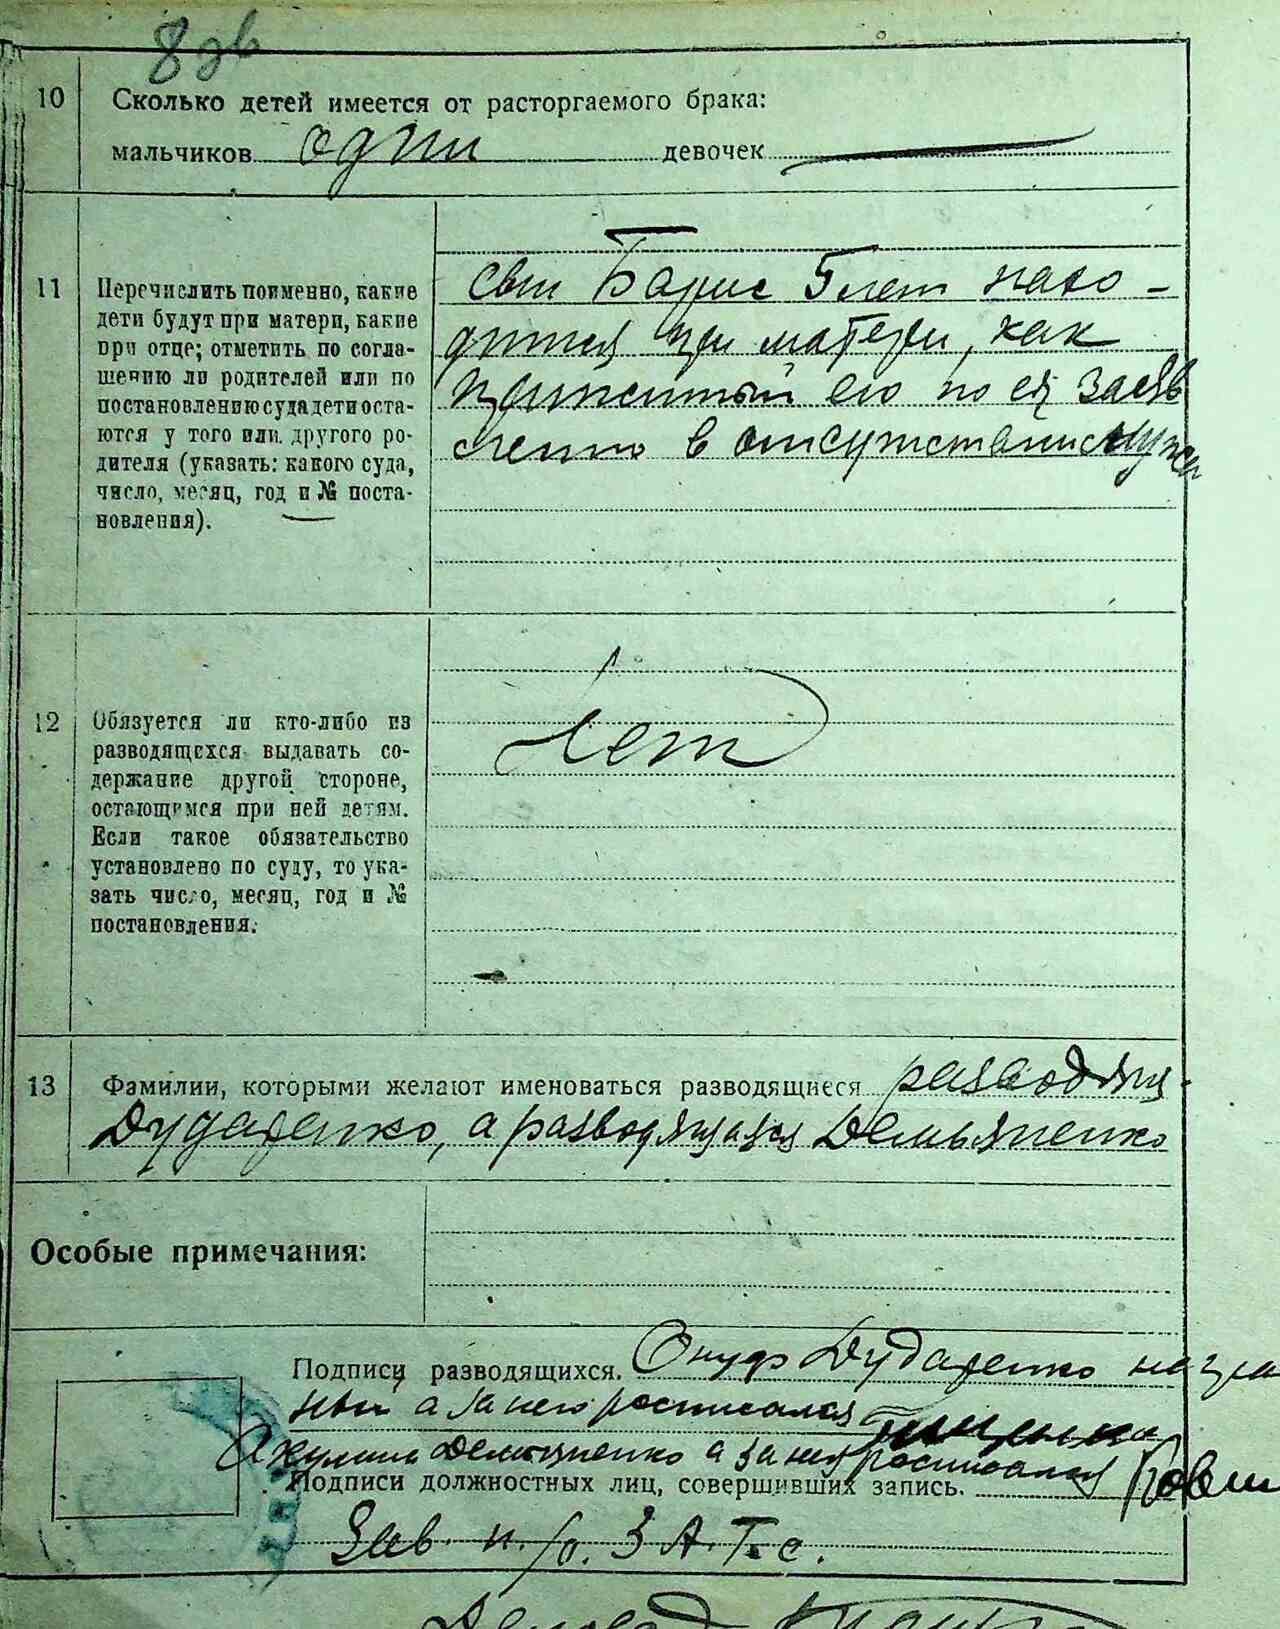 10 Сколько детей имеется от расторгаемого брака:
мальчиков один девочек
11 Перечислить поименно, какие
дети будут при матери, какие
при отце; отметить по согла-
шению ли родителей или по
постановлению суда дети оста-
ются у того или другого ро-
дителя (указать: какого суда,
число, месяц, год и № поста-
новления).
Борис 5 лет нахо-
дится при матери, как
его по ея заяв
в мужа
12 Обязуется ли кто-либо из
разводящихся выдавать со-
держание другой стороне,
остающимся при ней детям.
Если такое обязательство
установлено по суду, то ука-
зать число, месяц, год и №
постановления.
нет
13 Фамилии, которыми желают именоваться разводящиеся
Дударенко, а разводящаяся Демьяненко
Особые примечания:
Подписи разводящихся. Онуф Дударенко негра
а за него росписался
Акулина Демьяненко а за нея росписался
Подписи должностных лиц, совершивших запись.
Зав. п/о. З.А.Г.С.